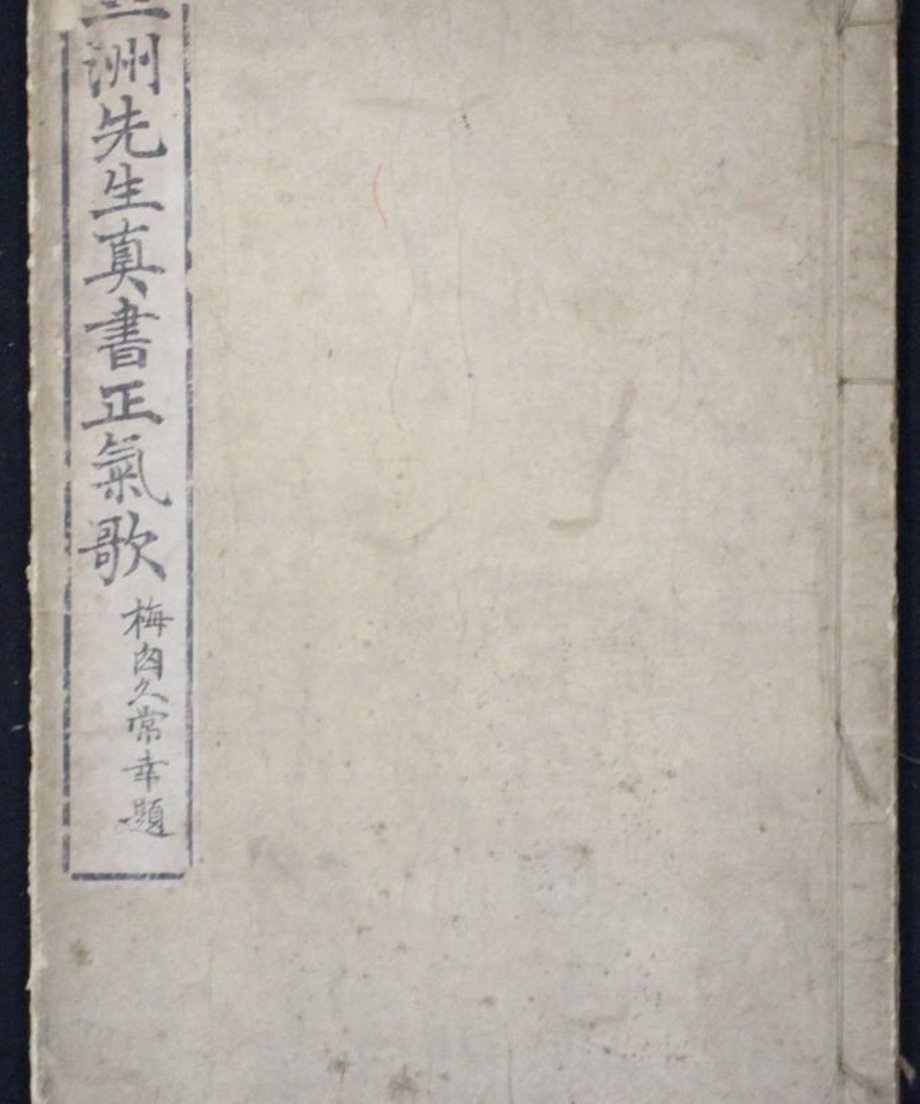 洲先生真書正氣歌
梅久常幸題